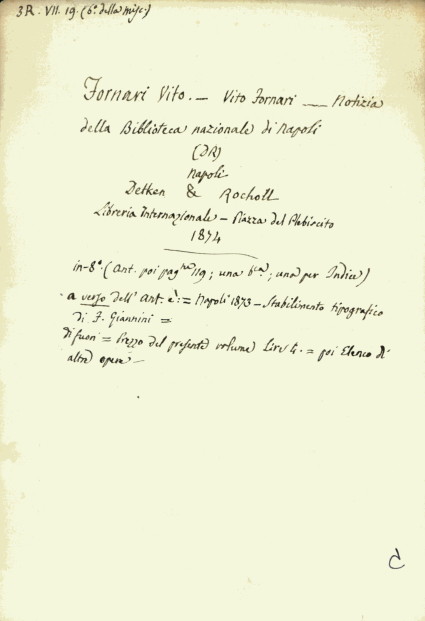 3R. VII. 19. (6º. della misc.)
Fornari Vito. — Vito Fornari — Notizia
della Biblioteca nazionale di Napoli
(DR)
Napoli
Detken & Rocholl
Libreria Internazionale — Piazza del Plebiscito
1874
in-8º. (Ant. poi pagne 119; una bca.; una per Indice)
a verso dell' Ant. è: = Napoli 1873 — Stabilimento tipografico
di F. Giannini =
di fuori = Prezzo del presente volume Lire 4. = poi Elenco di
altre opere —